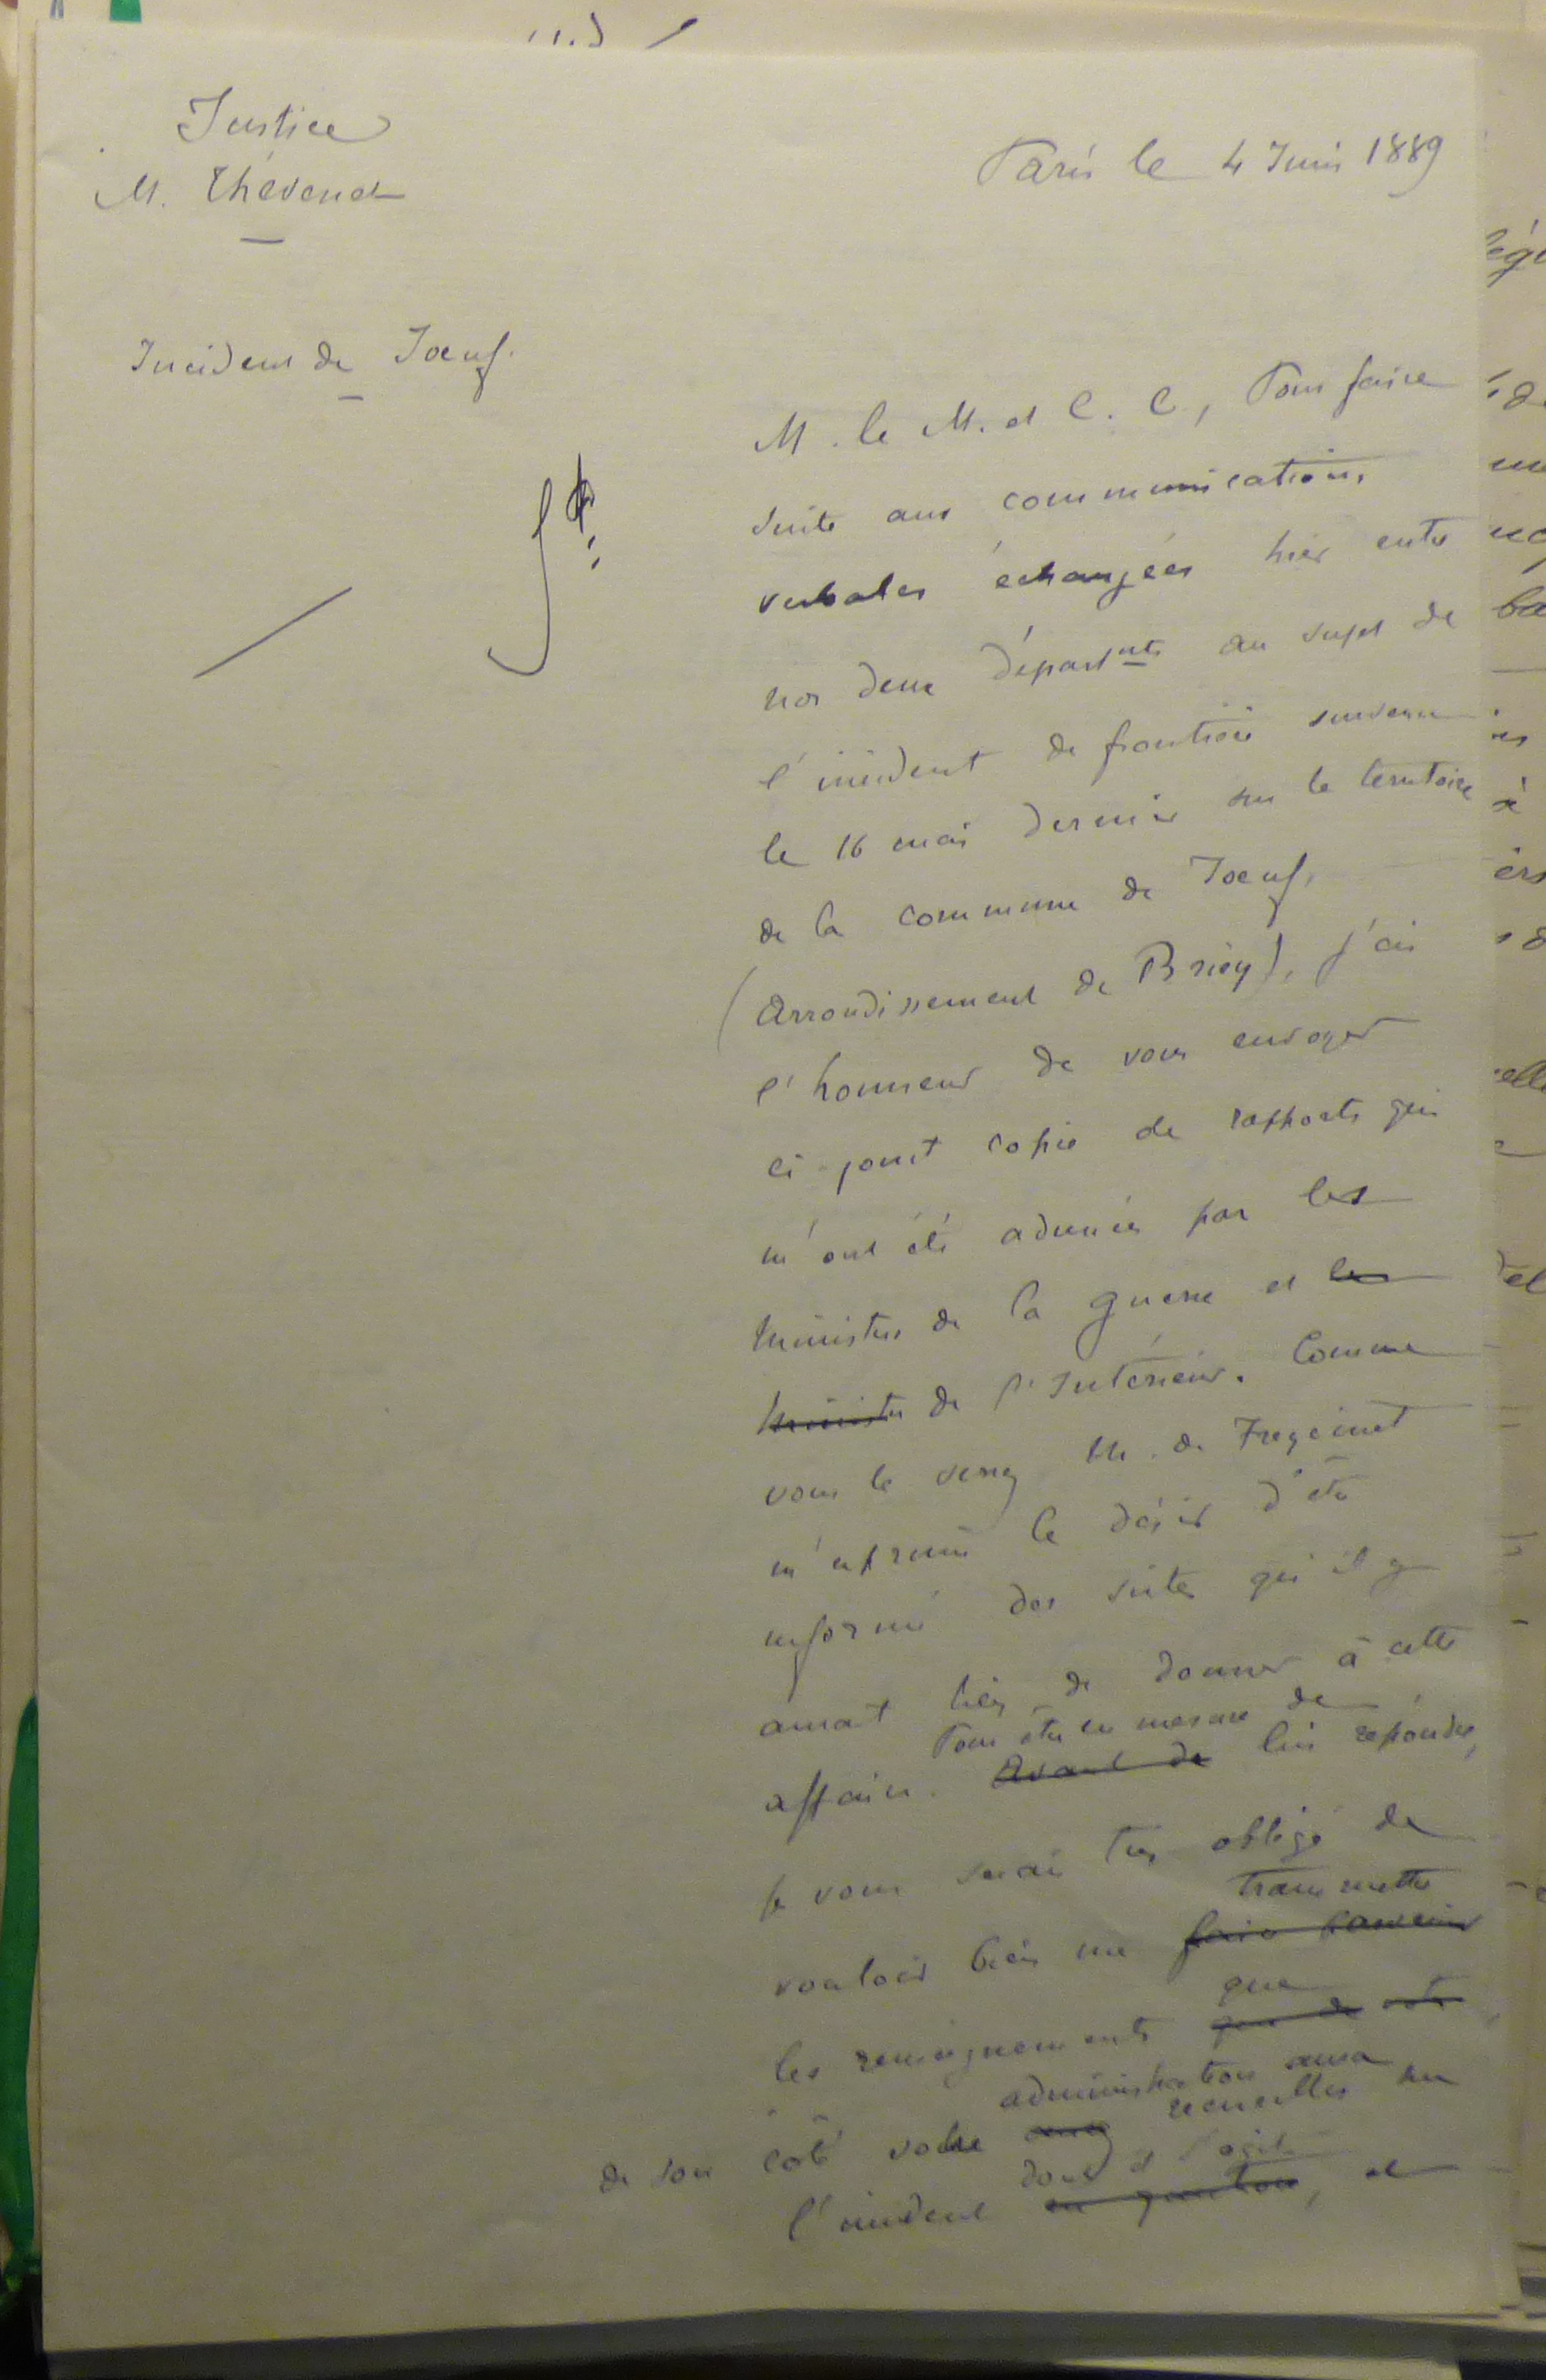 Justice
M. Thévenet
Paris le 4 Juin 1889
Incident de Joeuf.
M. le M. et C. C, Pour faire
suite aux communications
verbales échangées hier entre
nos deux départnts au sujet de
l'incident de frontière survenu
le 16 mai dernier sur le territoire
de la commune de Joeuf,
(Arrondissement de Briey), j'ai
l'honneur de vous envoyer
ci-joint copie de rapports qui
m'ont été adressés par les
Ministres de la guerre et les
Ministre de l'Intérieur. Comme
vous le verrez M. de Freycinet
m'exprime le désir d'être
informé des suites qu'il y
aurait lieu de donner à cette
Pour être en mesure de
affaire. Avant de lui répondre,
je vous serai très obligé de
transmettre
vouloir bien me faire parvenir
que
les renseignements que de votre
administration aura
de son côté votre avez recueillis sur
dont il s'agit
l'incident en question, et